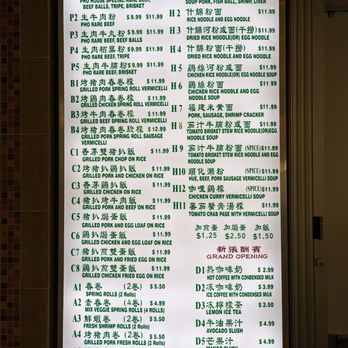 BEEF BALLS, TRIPE
P2 生牛肉粉 $9.99 $11.99
PHO RARE BEEF
P3 生肉牛丸粉 $9.99 $11.99
PHO RARE BEEF, BEEF BALLS
P5 $9.99 $11.99
PHO RARE BEEF, BRISKET, TRIPE
B1 烤豬肉春卷檬 $11.99
GRILLED PORK SPRING ROLL VERMICELLI
B2 烤鷄肉春卷檬 $11.99
GRILLED CHICKEN SPRING ROLL VERMICELLI
B3 烤牛肉春卷檬 $11.99
GRILLED BEEF SPRING ROLL VERMICELLI
B4 烤豬肉春卷軟檬 $12.99
GRILLED PORK SPRING ROLL SAUSAGE VERMICELLI
C1 香茅雙豬扒飯 $11.99
GRILLED PORK CHOP ON RICE
C2 烤豬扒鷄扒飯 $11.99
GRILLED PORK AND CHICKEN ON RICE
C3 香茅鷄扒飯 $11.99
GRILLED CHICKEN ON RICE
C4 烤豬扒牛扒飯 $11.99
GRILLED PORK AND BEEF ON RICE
C5 烤豬扒焗蛋飯 $11.99
GRILLED PORK AND EGG LOAF ON RICE
C6 鷄扒焗蛋飯 $11.99
GRILLED CHICKEN AND EGG LOAF ON RICE
C7 豬扒煎蛋飯 $11.99
GRILLED PORK AND FRIED EGG ON RICE
C8 鷄扒煎蛋飯 $11.99
GRILLED CHICKEN FRIED EGG ON RICE
A1 春卷 (2卷) $5.50
SPRING ROLLS (2 Rolls)
A2 素春卷 (4卷) $5.50
MIX VEGGIE SPRING ROLLS (4 ROLLS)
A3 鮮蝦卷 (2卷) $5.50
FRESH SHRIMP ROLLS (2 Rolls)
A4 烤豬肉卷 (2卷) $5.50
SOUP PORK, FISH BALL, SHRIMP, LIVER
H2 什錦粉面 $11.99
RICE NOODLE AND EGG NOODLE
H3 什錦河粉面(干撈) $11.99
DRIED RICE NOODLE(OR) EGG NOODLE
H4 什錦粉面(干撈) $11.99
DRIED RICE NOODLE AND EGG NOODLE
H5 鷄絲河粉或面 $11.99
CHICKEN RICE NOODLE(OR)EGG NOODLE SOUP
H6 鷄絲粉面 $11.99
CHICKEN RICE NOODLE AND EGG NOODLE SOUP
H7 福建米黄面 $11.99
PORK, SAUSAGE, SHRIMP CRACKER
H8 茄汁牛腩粉或面 $11.99
TOMATO BRISKET STEW RICE NOODLE(OR)EGG NOODLE SOUP
H9 茄汁牛腩粉面 (SPICE) $11.99
TOMATO BRISKET STEW RICE NOODLE AND EGG NOODLE SOUP
H10 順化瀨粉 (SPICE) $11.99
HUE, BEEF, PORK SAUSAGE VERMICELLI
H12 咖喱鷄檬 $11.99
CURRY CHICKEN VERMICELLI
H11 番茄蟹膏湯檬 $11.99
TOMATO CRAB PASE WITH VERMICELLI SOUP
加煎蛋 加焗蛋 加飯
$1.25 $2.50 $1.50
新張酬賓
GRAND OPENING
D1 热咖啡奶 $2.99
HOT COFFEE WITH CONDENSED MILK
D2 冻咖啡奶 $3.50
ICED COFFEE WITH CONDENSED MILK
D3 冻檸檬茶 $3.50
LEMON ICE TEA
D4 牛油果汁 $4.99
AVOCADO SLUSH
D5 芒果汁 $4.99